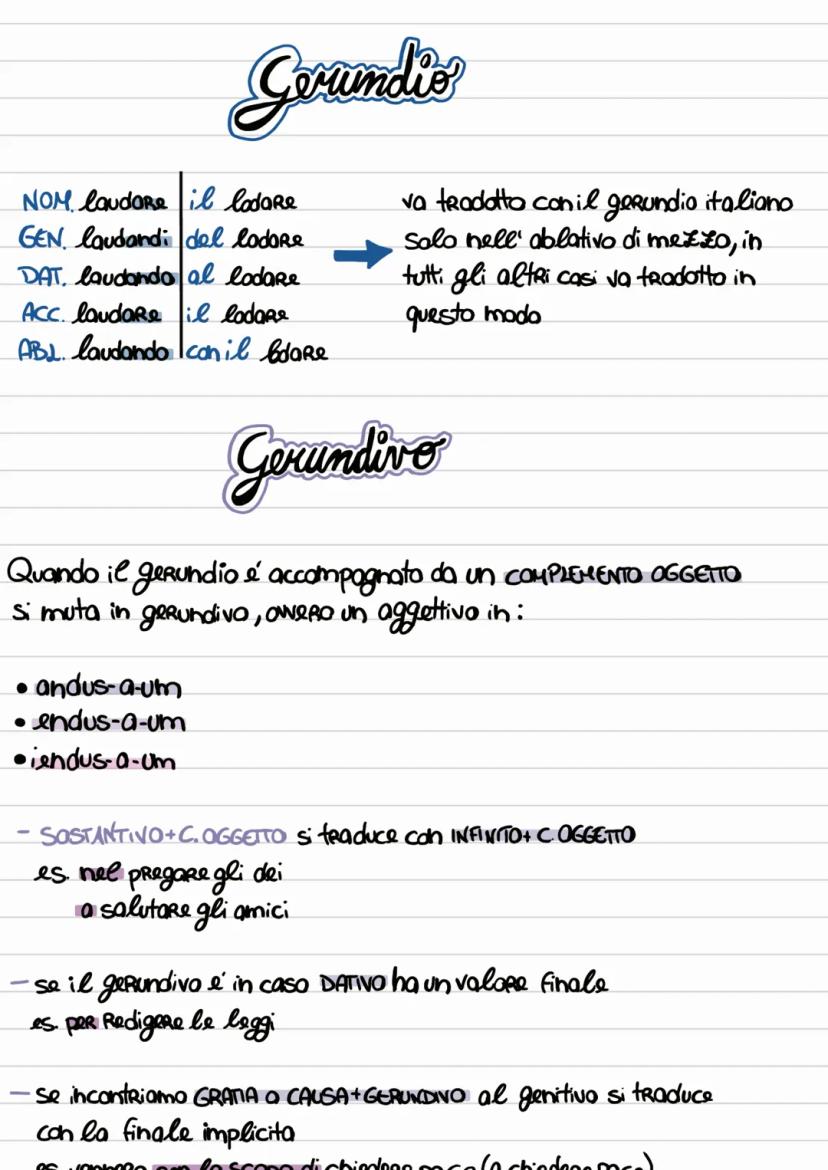 Gerundio
NOM. laudare il lodare
GEN. laudandi del lodare
DAT. laudando al lodare
ACC. laudare il lodare
ABL. laudando con il lodare
va tradotto con il gerundio italiano
solo nell' ablativo di mezzo, in
tutti gli altri casi va tradotto in
questo modo
Gerundivo
Quando il gerundio é accompagnato da un COMPLEMENTO OGGETTO
si muta in gerundivo, ovvero un aggettivo in:
• andus-a-um
• endus-a-um
• iendus-a-um
- SOSTANTIVO+C.OGGETTO si traduce con INFINITO+C.OGGETTO
es. nel pregare gli dei
a salutare gli amici
- se il gerundivo é in caso DATIVO ha un valore finale
es. per redigere le leggi
- se incontriamo GRATIA o CAUSA+GERUNDIVO al genitivo si traduce
con la finale implicita
es. con lo scopo di chiedere pace (a chiedere pace)